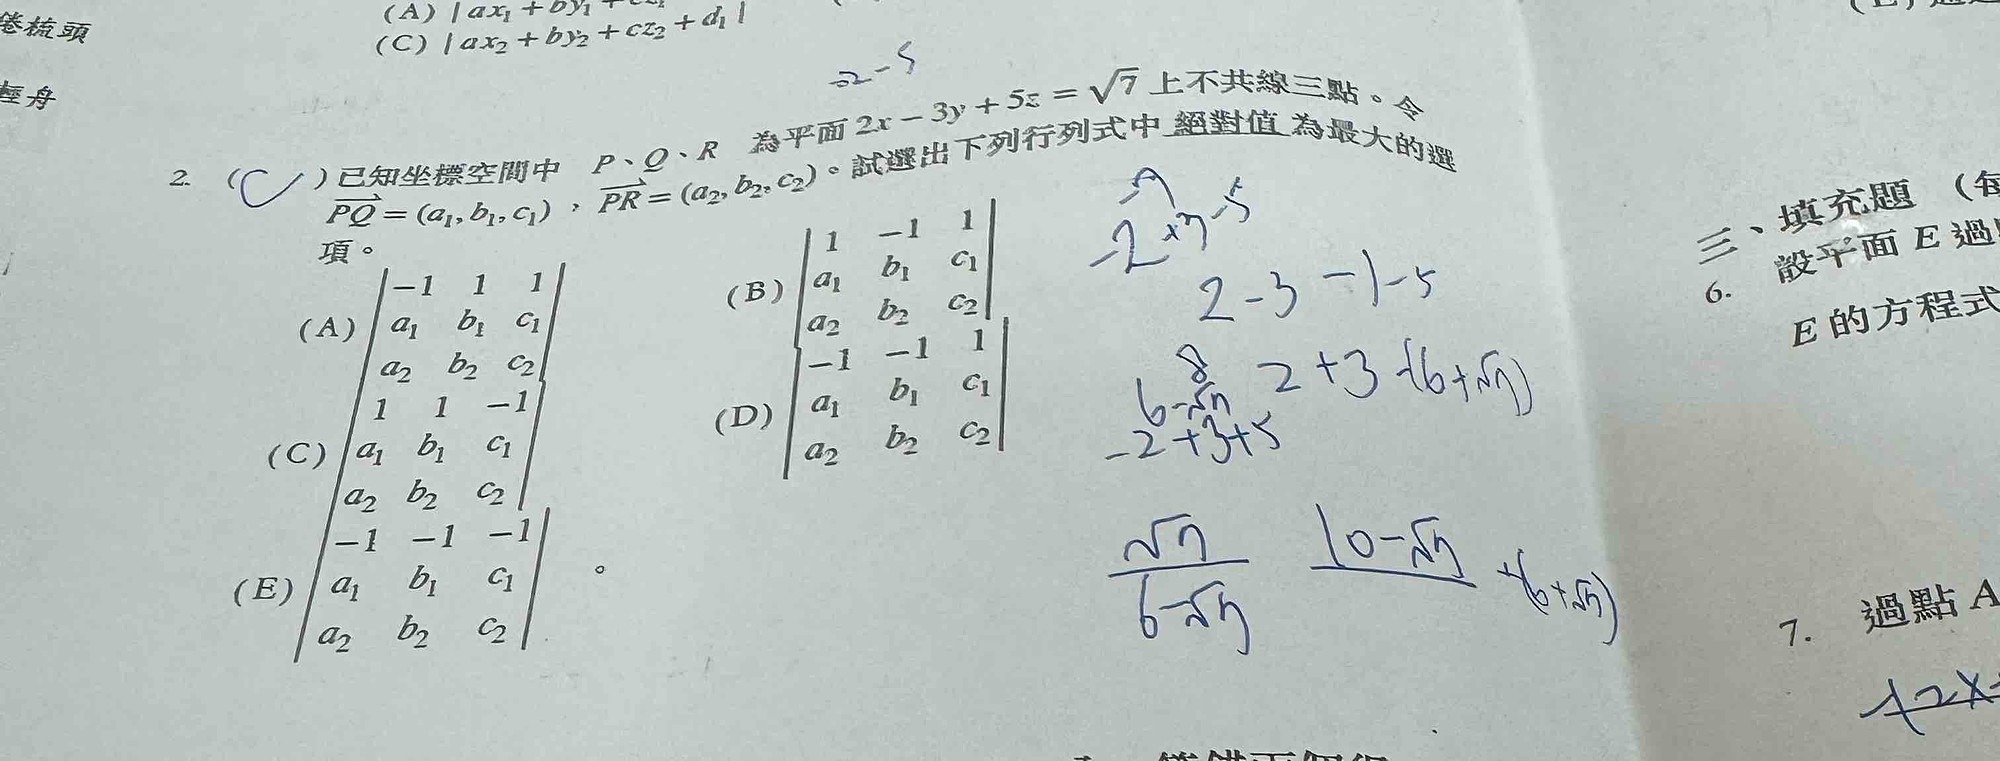 捲梳頭
輕舟
(A) | ax₁ + by₁ +
(C) | ax₂ + by₂ + cz₂ + d₁ |
-2-5
2. ( C ) 已知坐標空間中 P、Q、R 為平面 2x − 3y + 5z = √7 上不共線三點。令
PQ = (a₁, b₁, c₁) , PR = (a₂, b₂, c₂)。試選出下列行列式中 絕對值 為最大的選
項。
(A) | −1 1 1 |
| a₁ b₁ c₁ |
| a₂ b₂ c₂ |
(B) | 1 −1 1 |
| a₁ b₁ c₁ |
| a₂ b₂ c₂ |
(C) | 1 1 −1 |
| a₁ b₁ c₁ |
| a₂ b₂ c₂ |
(D) | −1 −1 1 |
| a₁ b₁ c₁ |
| a₂ b₂ c₂ |
(E) | −1 −1 −1 |
| a₁ b₁ c₁ |
| a₂ b₂ c₂ | 。
2-3-1-5
8
6-√7
2+3-(6+√7)
-2+3+5
√7
6-√7
10-√7
+(6+√7)
三、填充題 (每
6. 設平面 E 過
E 的方程式
7. 過點 A